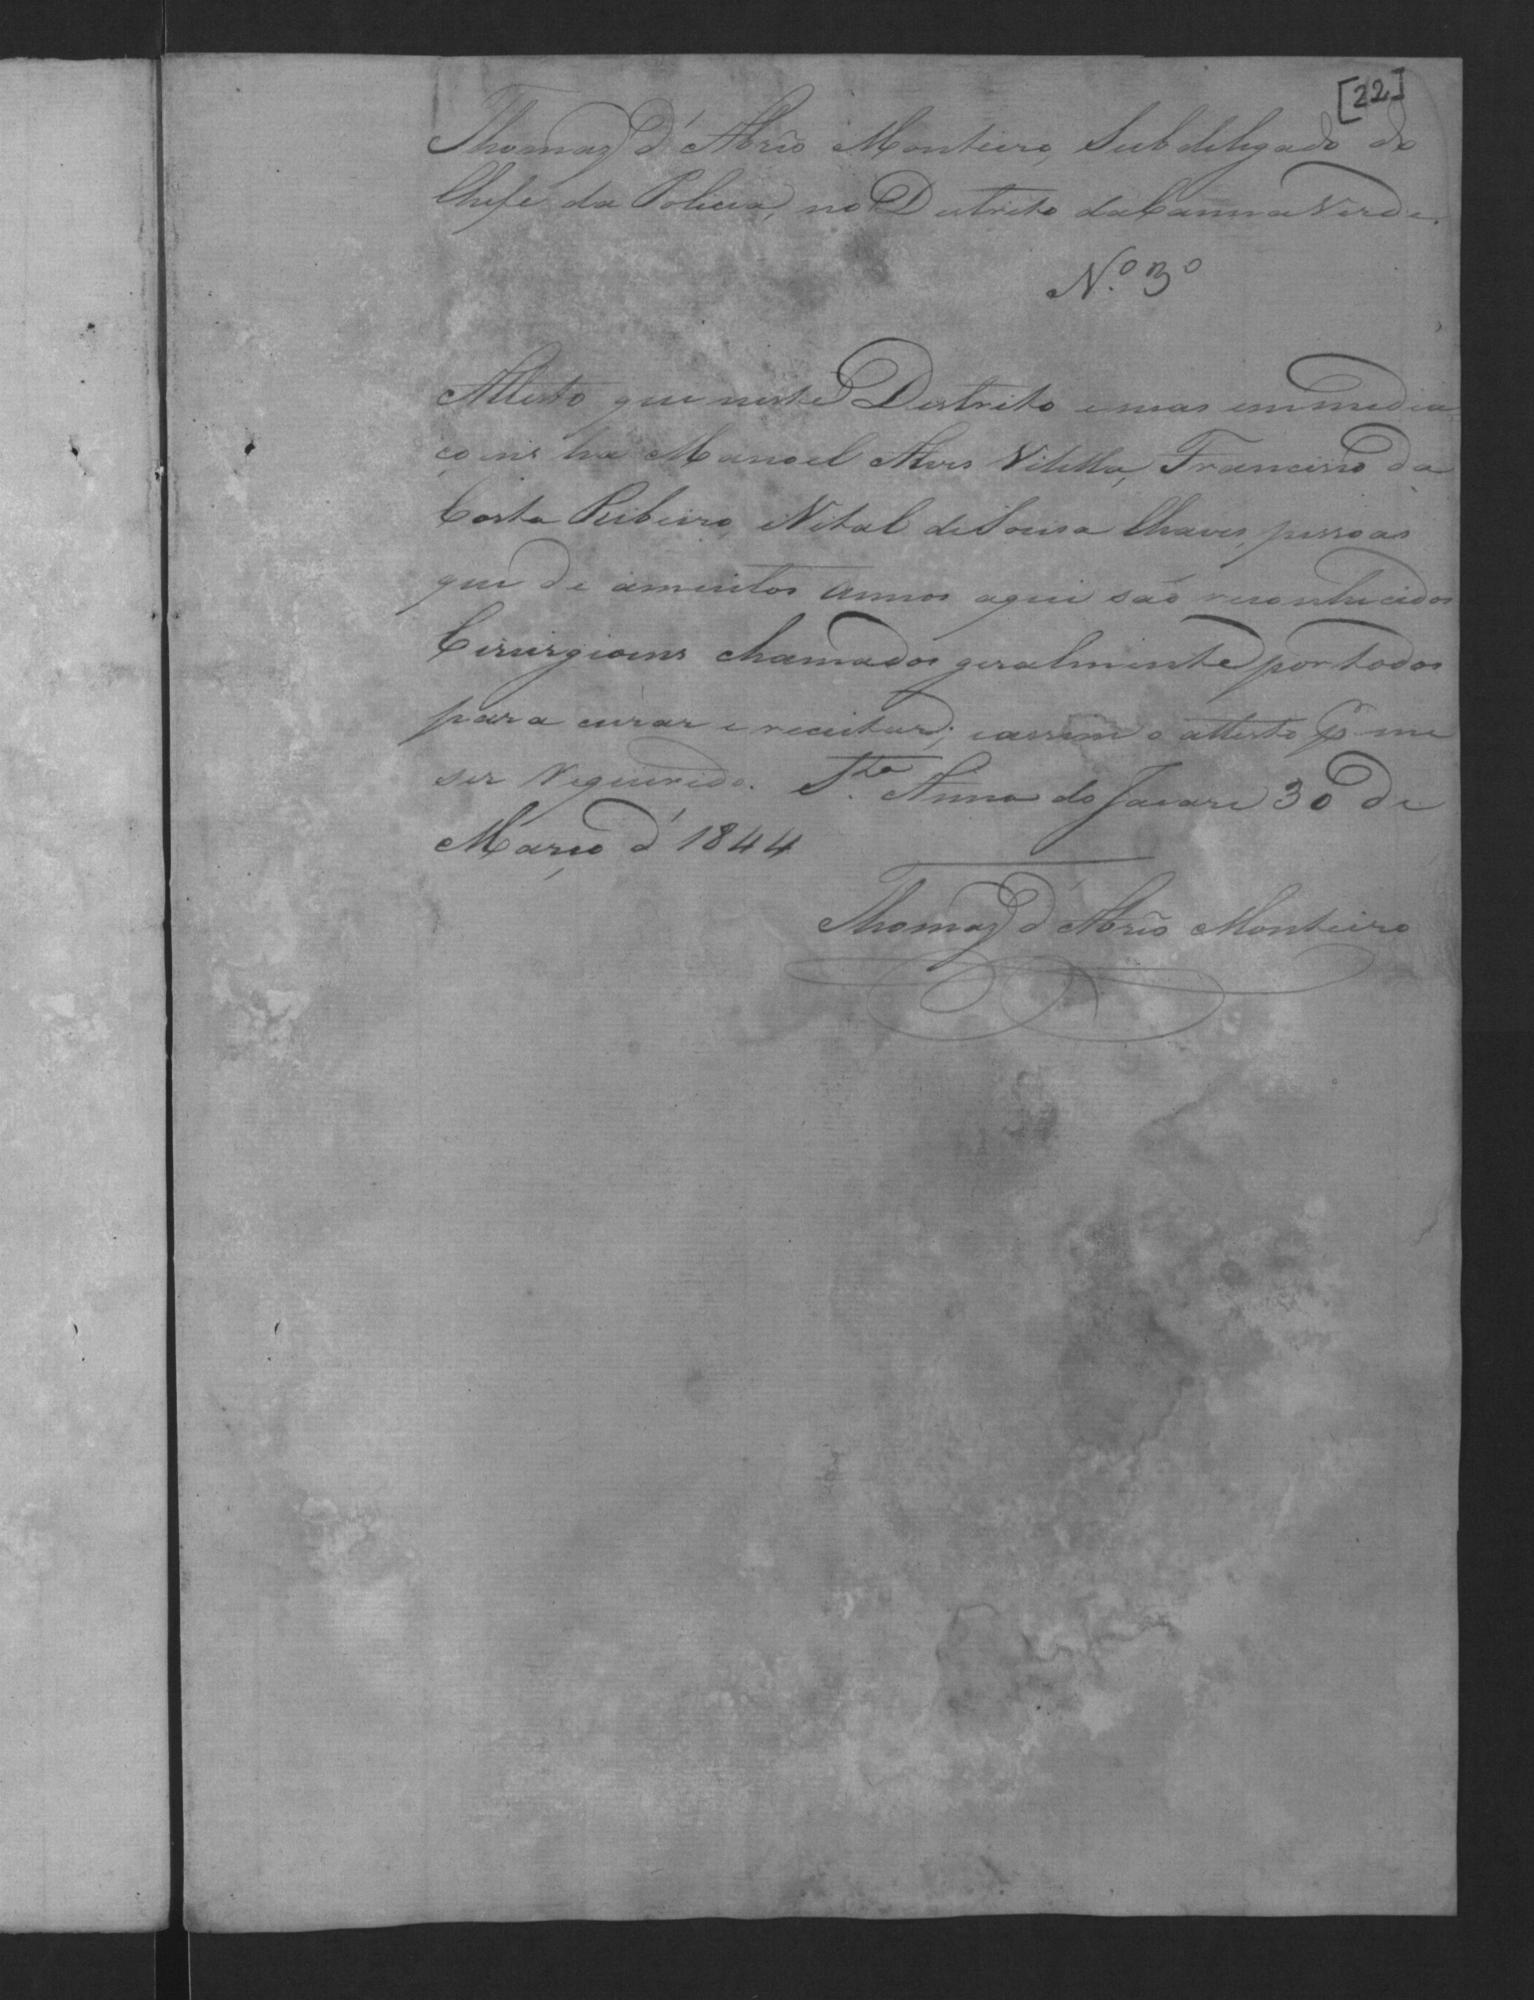 [22]
Thomaz d'Abrêo Monteiro, Subdelegado do
Chefe da Policia, no Destrito da Canna Verde.
N.º 3º
Attesto que neste Destrito e suas immedia
çoens ha Manoel Alves Vilella, Francisco da
Costa Ribeiro, e Vital de Sousa Chaves, pessoas
que de á muitos annos aqui são reconhecidos
Cirurgioens chamados geralmente por todos
para curar e receitar; e assim o attesto p.r me
ser requerido. S.ta Anna do Jacaré 30 de
Março d'1844
Thomaz d'Abrêo Monteiro